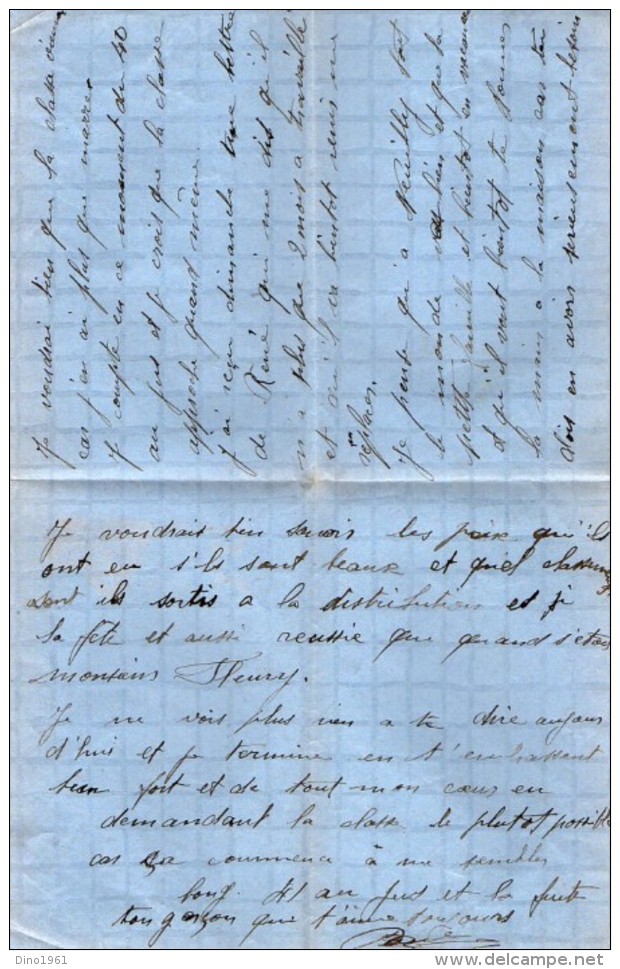 Je voudrai bien que la classe vienne
car j'en ai plus que marre.
Je compte en ce moment du 40
au jus et je crois que la classe
approche quand même.
J'ai reçu dimanche une lettre
de René qui me dit qu'il
n'a plus que 2 mois a travaillé
et qu'il va bientot venir me
replacer.
Je pense qu'a Neuilly tout
le monde va bien et que la
petite famille et bientot en vacance
et qu'il vont bientot te donner
la main à la maison car tu
dois en avoir serieusement besoin
Je voudrais bien savoir les prix qu'ils
ont eu s'ils sont beaux et quel classement
sont ils sortis a la distribution et si
la fête et aussi reussie que quand s'étais
monsieur Fleury.
Je ne vois plus rien a te dire aujour
d'hui et je termine en t'embrassent
bien fort et de tout mon cœur en
demandant la classe le plutot possible
car ça commence à me sembler
long. 41 au jus et la fuite
ton garçon que t'aime toujours
Dino1961
delcampe.net